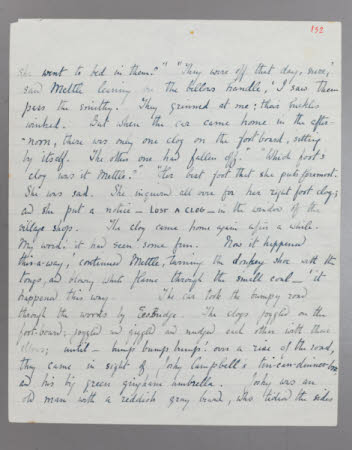 152
she went to bed in them?" "They were off that day, sure,"
said Mettle leaning on the bellows handle, 'I saw them
pass the smithy. They grinned at me; their buckles
winked. But when the car came home in the after-
-noon, there was only one clog on the footboard, sitting
by itself. The other one had fallen off." "Which foot's
clog was it Mettle?" "Her best foot that she put foremost.
She was sad. She inquired all over for her right foot clog;
and she put a notice – LOST A CLOG – in the window of the
village shop. The clog came home again after a while.
My word! it had seen some fun. Now it happened
this-a-way,' continued Mettle, turning the donkey shoe with the
tongs, and blowing white flame through the small coal – 'it
happened this way. The car took the bumpy road
through the woods by Eesbridge. The clogs joggled on the
foot-board; joggled and giggled and nudged each other with their
elbows; until – bump! bump! bump! over a rise of the road,
they came in sight of Joky Campbell's tin-can-dinner-box
and his big green gingham umbrella. Joky was an
old man with a reddish gray beard, who tidied the sides